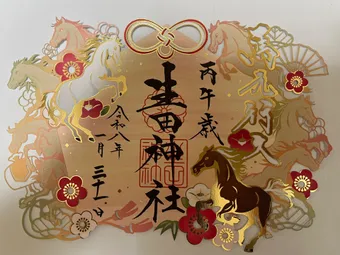 丙午歳
生田神社
令和八年
一月
三十一日